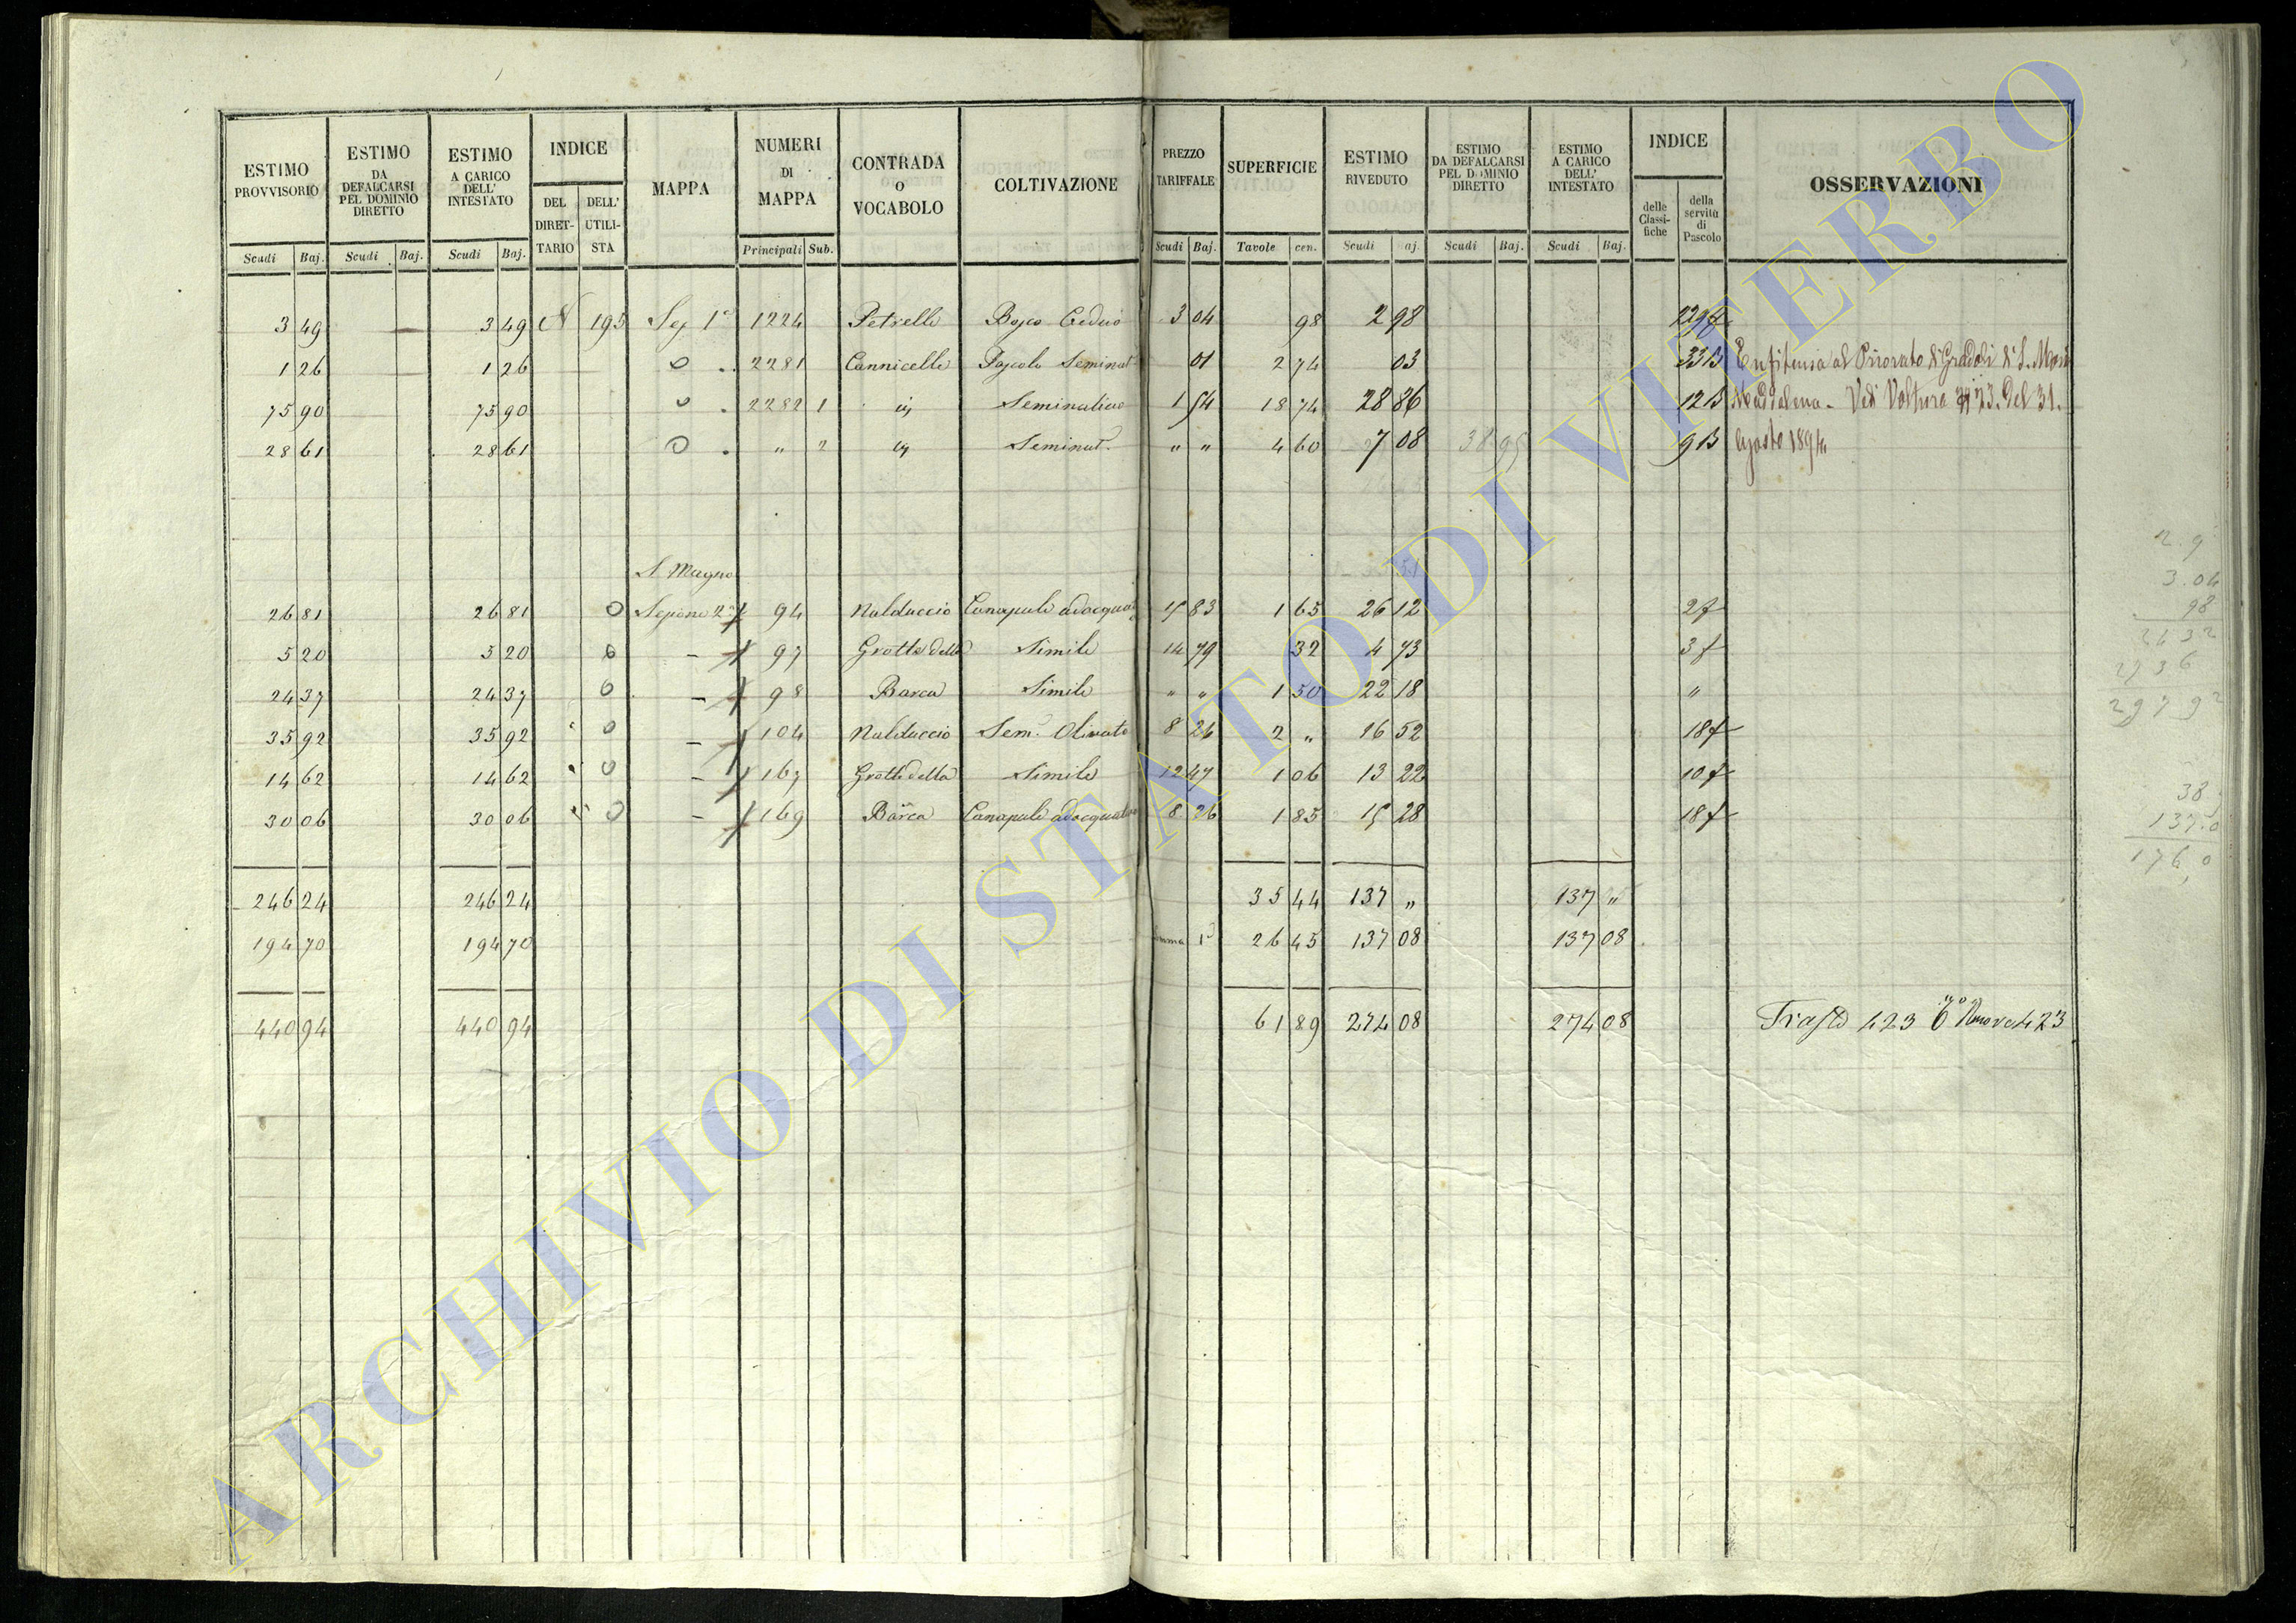 ESTIMO PROVVISORIO | ESTIMO DA DEFALCARSI PEL DOMINIO DIRETTO | ESTIMO A CARICO DELL' INTESTATO | INDICE | MAPPA | NUMERI DI MAPPA | CONTRADA O VOCABOLO | COLTIVAZIONE | PREZZO TARIFFALE | SUPERFICIE | ESTIMO RIVEDUTO | ESTIMO DA DEFALCARSI PEL DOMINIO DIRETTO | ESTIMO A CARICO DELL' INTESTATO | INDICE | OSSERVAZIONI
DEL DIRETTARIO | DELL' UTILISTA | delle Classifiche | della servitù di Pascolo
Scudi | Baj. | Scudi | Baj. | Scudi | Baj. | Principali | Sub. | Scudi | Baj. | Tavole | cen. | Scudi | aj. | Scudi | Baj. | Scudi | Baj.
3 49 | 3 49 | N 195 | Sez 1a | 1224 | Petrelle | Bosco Ceduo | 3 04 | 98 | 2 98 | 229 f
1 26 | 1 26 | O | 2281 | Cannicelle | Pascolo Seminat | 01 | 2 74 | 03 | 33 B | Enfiteusi al Priorato di Gradoli di S. Maria
75 90 | 75 90 | O | 2282 1 | id | Seminativo | 1 54 | 18 74 | 28 86 | 12 B | Maddalena - Vedi Voltura N 23. del 31.
28 61 | 28 61 | O | " 2 | id | Seminat. | " " | 4 60 | 7 08 | 38 95 | 9 B | Agosto 1894
S Magno
26 81 | 26 81 | O | Sezione 2a | 94 | Nalduccio | Canapule adacquat | 15 83 | 1 65 | 26 12 | 2 f
5 20 | 5 20 | O | - | 97 | Grotte della | Simile | 14 79 | 32 | 4 73 | 3 f
24 37 | 24 37 | O | - | 98 | Barca | Simile | " " | 1 50 | 22 18 | "
35 92 | 35 92 | O | - | 104 | Nalduccio | Sem. Olivato | 8 26 | 2 " | 16 52 | 18 f
14 62 | 14 62 | O | - | 167 | Grotte della | Simile | 12 47 | 1 06 | 13 22 | 10 f
30 06 | 30 06 | O | - | 169 | Barca | Canapule adacquativo | 8 26 | 1 85 | 15 28 | 18 f
246 24 | 246 24 | 35 44 | 137 " | 137 "
194 70 | 194 70 | Somma 1a | 26 45 | 137 08 | 137 08
440 94 | 440 94 | 61 89 | 274 08 | 274 08 | 423
3.04
98
2432
2736
29792
38
137.0
176,0
ARCHIVIO DI STATO DI VITERBO